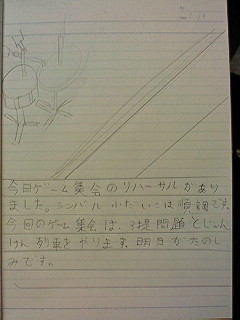 今日ゲーム集会のリハーサルがあり
ました。シンバル 小だいこは順調です。
今回のゲーム集会は、3提問題とじゃん
けん列車をやります。明日がたのし
みです。